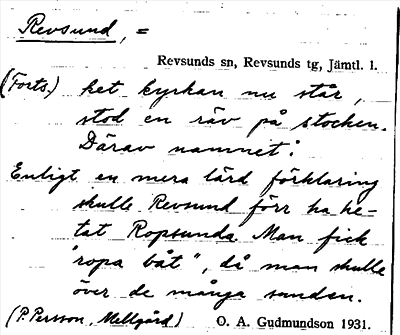 Revsund, =
Revsunds sn, Revsunds tg, Jämtl. l.
(Forts.) ket kyrkan nu står,
stod en räv på stocken.
Därav namnet.
Enligt en mera lärd förklaring
skulle Revsund förr ha he-
tat Ropsunda. Man fick
"ropa båt", då man skulle
över de många sunden.
(P. Persson, Mellgård) O. A. Gudmundson 1931.